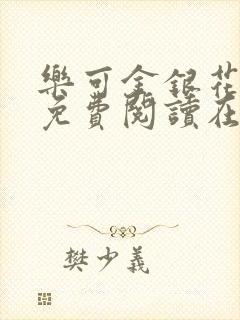 樂可金銀花
免費閱讀在
樊少義